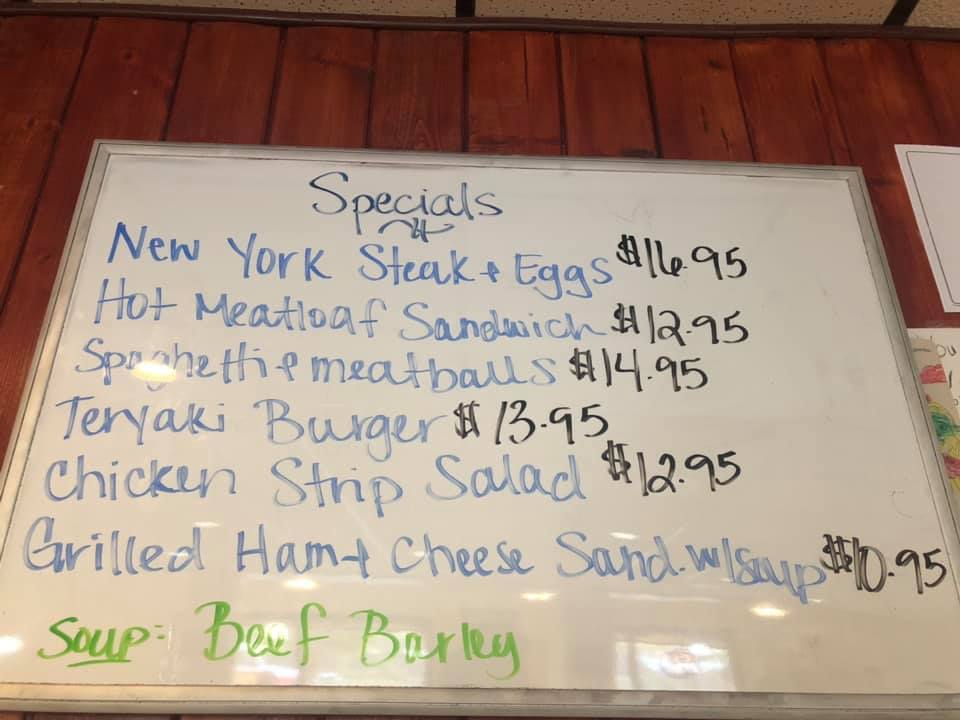 Specials
New York Steak + Eggs $16.95
Hot Meatloaf Sandwich $12.95
Spaghetti + meatballs $14.95
Teryaki Burger $13.95
Chicken Strip Salad $12.95
Grilled Ham + Cheese Sand. w/soup $10.95
Soup: Beef Barley